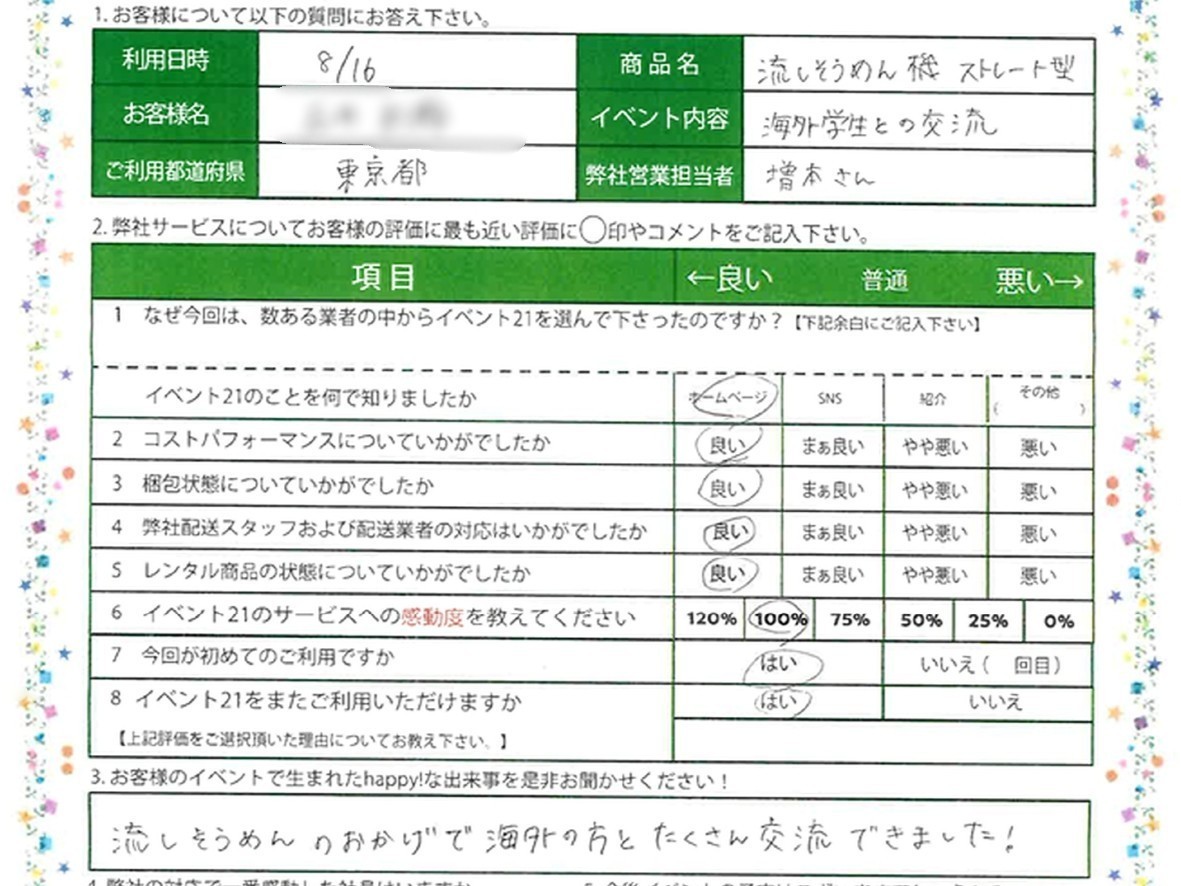 1. お客様について以下の質問にお答え下さい。
利用日時 8/16 商品名 流しそうめん機 ストレート型
お客様名 イベント内容 海外学生との交流
ご利用都道府県 東京都 弊社営業担当者 増本さん
2. 弊社サービスについてお客様の評価に最も近い評価に○印やコメントをご記入下さい。
項目 ←良い 普通 悪い→
1 なぜ今回は、数ある業者の中からイベント21を選んで下さったのですか?【下記余白にご記入下さい】
イベント21のことを何で知りましたか ホームページ SNS 紹介 その他( )
2 コストパフォーマンスについていかがでしたか 良い まぁ良い やや悪い 悪い
3 梱包状態についていかがでしたか 良い まぁ良い やや悪い 悪い
4 弊社配送スタッフおよび配送業者の対応はいかがでしたか 良い まぁ良い やや悪い 悪い
5 レンタル商品の状態についていかがでしたか 良い まぁ良い やや悪い 悪い
6 イベント21のサービスへの感動度を教えてください 120% 100% 75% 50% 25% 0%
7 今回が初めてのご利用ですか はい いいえ( 回目)
8 イベント21をまたご利用いただけますか はい いいえ
【上記評価をご選択頂いた理由についてお教え下さい。】
3. お客様のイベントで生まれたhappy!な出来事を是非お聞かせください!
流しそうめんのおかげで海外の方とたくさん交流できました!